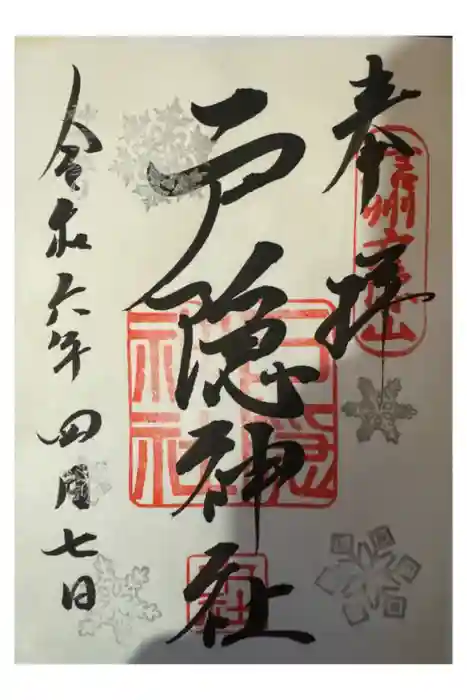 奉拝
戸隠神社
令和六年四月七日
戸隠神社